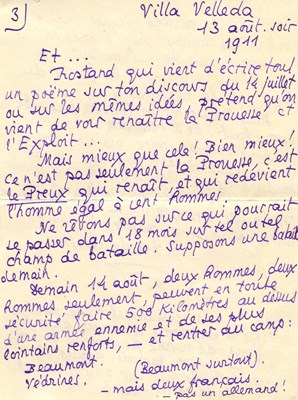 3)
Villa Velleda
13 août. soir
1911
Et ...
Rostand qui vient d'écrire tout
un poème sur ton discours du 14 juillet
ou sur les mêmes idées, prétend qu'on
vient de voir renaître la Prouesse et
l'Exploit ...
Mais mieux que cela! Bien mieux!
ce n'est pas seulement la Prouesse, c'est
le Preux qui renaît, et qui redevient
l'homme égal à cent hommes
Ne rêvons pas sur ce qui pourrait
se passer dans 18 mois sur tel ou tel
champ de bataille. Supposons une bataille
demain.
Demain 14 août, deux hommes, deux
hommes seulement, peuvent en toute
sécurité faire 500 kilomètres au dessus
d'une armée ennemie et de ses plus
lointains renforts, — et rentrer au camp:
Beaumont. (Beaumont surtout).
Védrines.
— mais deux français.
— pas un allemand!